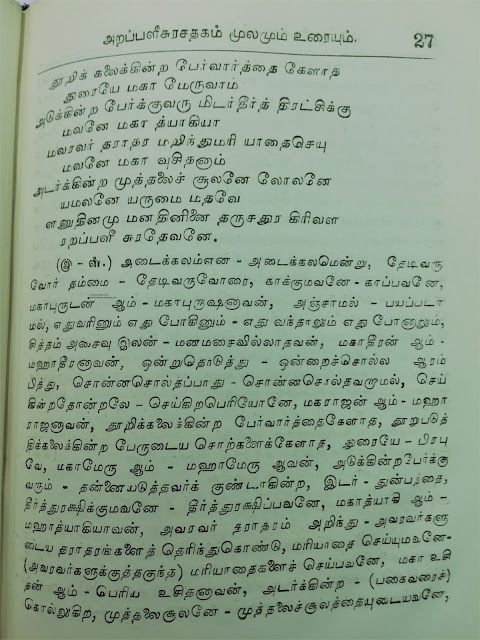 அறப்பளீசுரசதகம் மூலமும் உரையும். 27
தூறிக் கலைக்கின்ற பேர்வார்த்தை கேளாத
துரையே மகா மேருவாம்
அடுக்கின்ற பேர்க்குவரு மிடர்தீர்த் திரட்சிக்கு
மவனே மகா த்யாகியா
மவரவர் தராதர மறிந்துமரி யாதைசெயு
மவனே மகா வுசிதனாம்
அடர்க்கின்ற முத்தலைச் சூலனே லோலனே
யமலனே யருமை மதவே
ளனுதினமு மனதினினை தருசதுர கிரிவள
ரறப்பளீ சுரதேவனே.
(இ - ள்.) அடைக்கலம்என - அடைக்கலமென்று, தேடிவரு
வோர் தம்மை - தேடிவருவோரை, காக்குமவனே - காப்பவனே,
மகாபுருடன் ஆம் - மகாபுருஷனாவன், அஞ்சாமல் - பயப்படா
மல், எதுவரினும் எது போகினும் - எது வந்தாலும் எது போனாலும்,
சித்தம் அசைவு இலன் - மனமசைவில்லாதவன், மகாதீரன் ஆம் -
மஹாதீரனாவன், ஒன்றுதொடுத்து - ஒன்றைச்சொல்ல ஆரம்
பித்து, சொன்னசொல்தப்பாது - சொன்னசொல்தவறாமல், செய்
கின்றதோன்றலே - செய்கிறபெரியோனே, மகராஜன் ஆம் - மஹா
ராஜனாவன், தூறிக்கலைக்கின்ற பேர்வார்த்தைகேளாத, தூறுபடுத்
திக்கலைக்கின்ற பேருடைய சொற்களைக்கேளாத, துரையே - பிரபு
வே, மகாமேரு ஆம் - மஹாமேரு ஆவன், அடுக்கின்றபேர்க்கு
வரும் - தன்னையடுத்தவர்க் குண்டாகின்ற, இடர் - துன்பத்தை,
தீர்த்துரக்ஷிக்குமவனே - தீர்த்துரக்ஷிப்பவனே, மகாத்யாகி ஆம் -
மஹாத்யாகியாவன், அவரவர் தராதரம் அறிந்து - அவரவர்களு
டைய தராதரங்களைத் தெரிந்துகொண்டு, மரியாதை செய்யுமவனே-
(அவரவர்களுக்குத்தகுந்த) மரியாதைகளைச் செய்பவனே, மகா உசி
தன் ஆம் - பெரிய உசிதனாவன், அடர்க்கின்ற - (பகைவரைச்)
கொல்லுகிற, முத்தலைசூலனே - முத்தலைச்சூலத்தையுடையவனே,